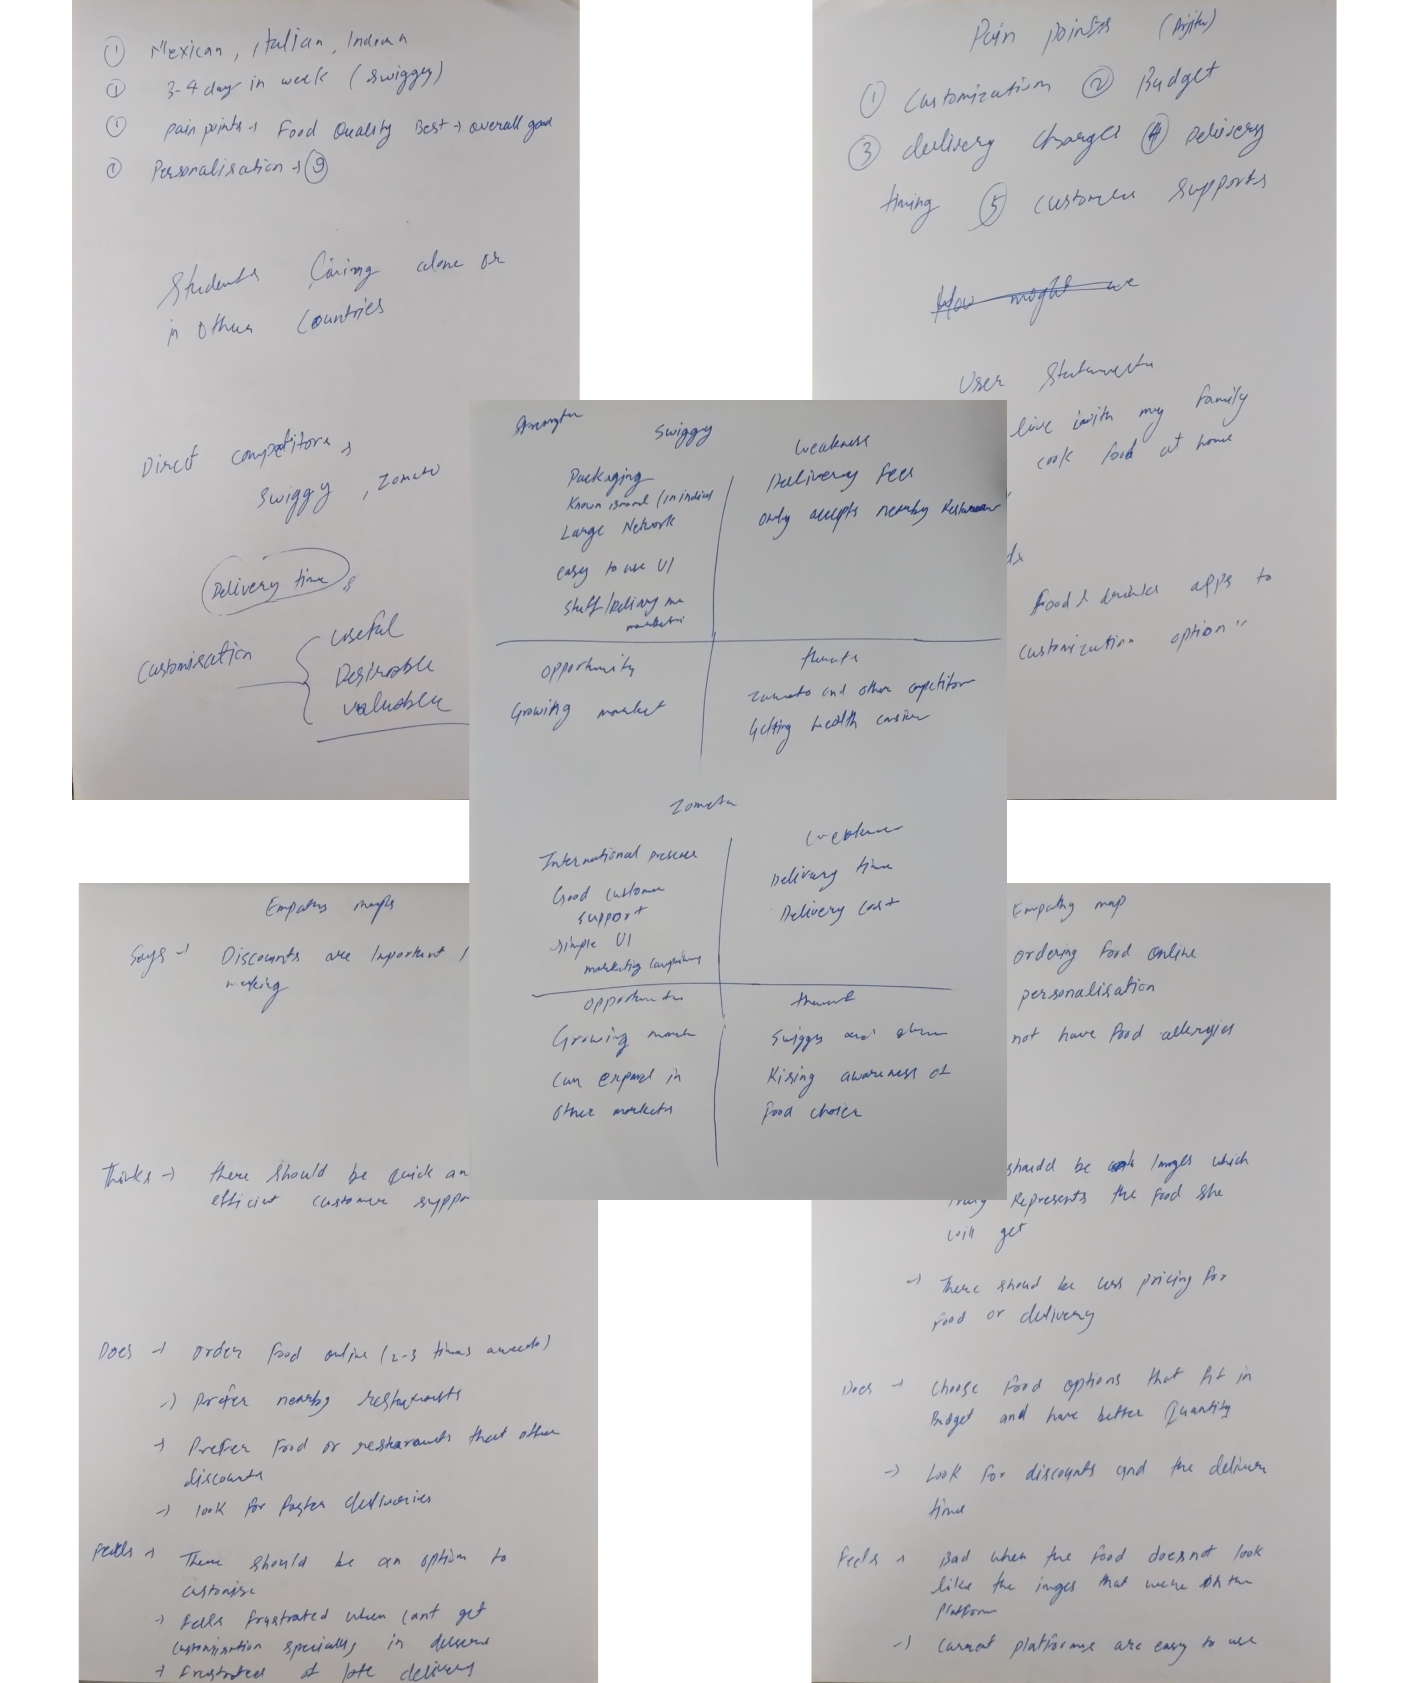 ① Mexican, Italian, Indian
① 3-4 day in week (swiggy)
① pain points → Food Quality Best → overall good
① Personalisation → ⑨
Students living alone or
in other countries
Direct competitors
swiggy, zomato
Delivery time
customisation
useful
Desirable
valuable
Pain points
① Customization ② Budget
③ delivery charges ④ Delivery
timing ⑤ customer supports
How might we
User Statements
live with my family
cook food at home
food & drinks apps to
customization option"
Strength
Swiggy
weakness
Packaging
Known brand (in india)
Large Network
easy to use UI
staff/Delivery
Delivery fees
only accepts nearby
opportunity
Growing market
threats
zomato and other competitor
Getting health
Zomato
International presence
Good customer
support
simple UI
marketing campaigns
Delivery time
Delivery cost
opportunities
Growing
can expand in
other markets
threat
Swiggy and other
Rising awareness of
food choice
Empathy maps
Says → Discounts are important
making
Thinks → there should be quick an
efficient customer suppo
Does → order food online (2-3 times a week)
→ Prefer nearby restaurants
→ Prefer food or restaurants that offer
discounts
→ look for faster deliveries
Feels → There should be an option to
customise
→ Fells frustrated when cant get
customisation specially in
→ frustrated of late delivery
Empathy map
ordering food online
personalisation
not have food allergies
should be images which
represents the food she
will get
→ There should be less pricing for
food or delivery
Does → Choose food options that fit in
Budget and have better Quantity
→ Look for discounts and the delivery
time
Feels → Bad when the food doesnot look
like the images that were on the
platform
→ Current platforms are easy to use